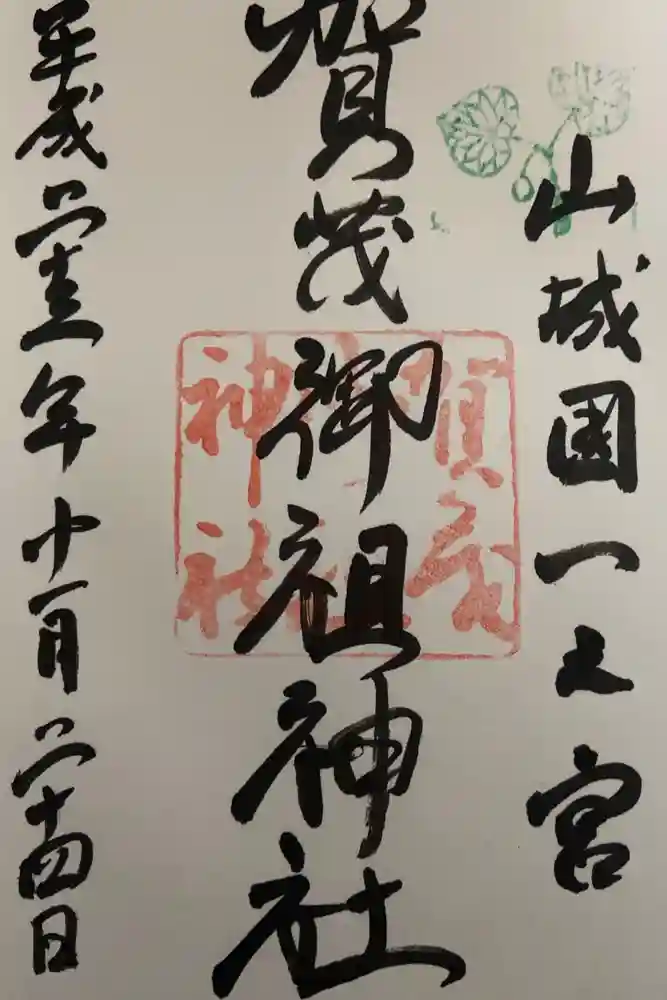 山城國一之宮
賀茂御祖神社
平成二十五年十一月二十四日
賀茂
御祖
神社